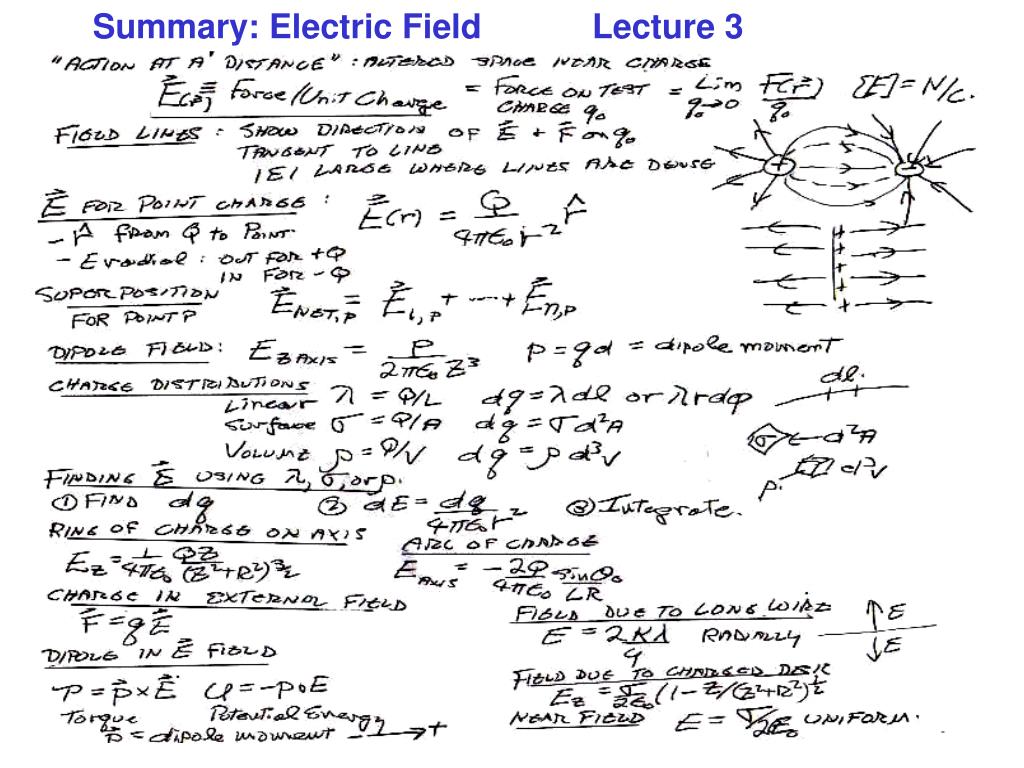 Summary: Electric Field Lecture 3
"ACTION AT A DISTANCE": ALTERED SPACE NEAR CHARGE
E(r) ≡ Force/Unit Charge = FORCE ON TEST CHARGE q₀ = Lim q₀→0 F(r)/q₀ [E] = N/C.
FIELD LINES: SHOW DIRECTION OF E + F on q₀
TANGENT TO LINE
|E| LARGE WHERE LINES ARE DENSE
E FOR POINT CHARGE: E(r) = Q/4πε₀r² r̂
- r̂ FROM Q to Point.
- E radial: OUT FOR +Q
IN FOR -Q
SUPERPOSITION E NET,P = E 1,P + ---- + E n,P
FOR POINT P
DIPOLE FIELD: E Z AXIS = P/2πε₀Z³ p = qd = dipole moment
CHARGE DISTRIBUTIONS
Linear λ = Q/L dq = λdl or λrdφ dl.
Surface σ = Q/A dq = σd²A σ d²A
VOLUME ρ = Q/V dq = ρd³V ρ. d³V
FINDING E USING λ, σ, or ρ.
① FIND dq ② dE = dq/4πε₀r² ③ Integrate.
RING OF CHARGE ON AXIS
E_Z = 1/4πε₀ QZ/(Z²+R²)^3/2
ARC OF CHARGE
E AXIS = -2Q/4πε₀ sinθ₀/LR
CHARGE IN EXTERNAL FIELD
F = qE
FIELD DUE TO LONG WIRE
E = 2Kλ/r RADIALLY ↑E
↓E
DIPOLE IN E FIELD
τ = p × E U = -p∘E
Torque Potential Energy
p = dipole moment - → +
FIELD DUE TO CHARGED DISK
E_Z = σ/2ε₀ (1 - Z/(Z²+R²)^1/2
NEAR FIELD E = σ/2ε₀ UNIFORM.